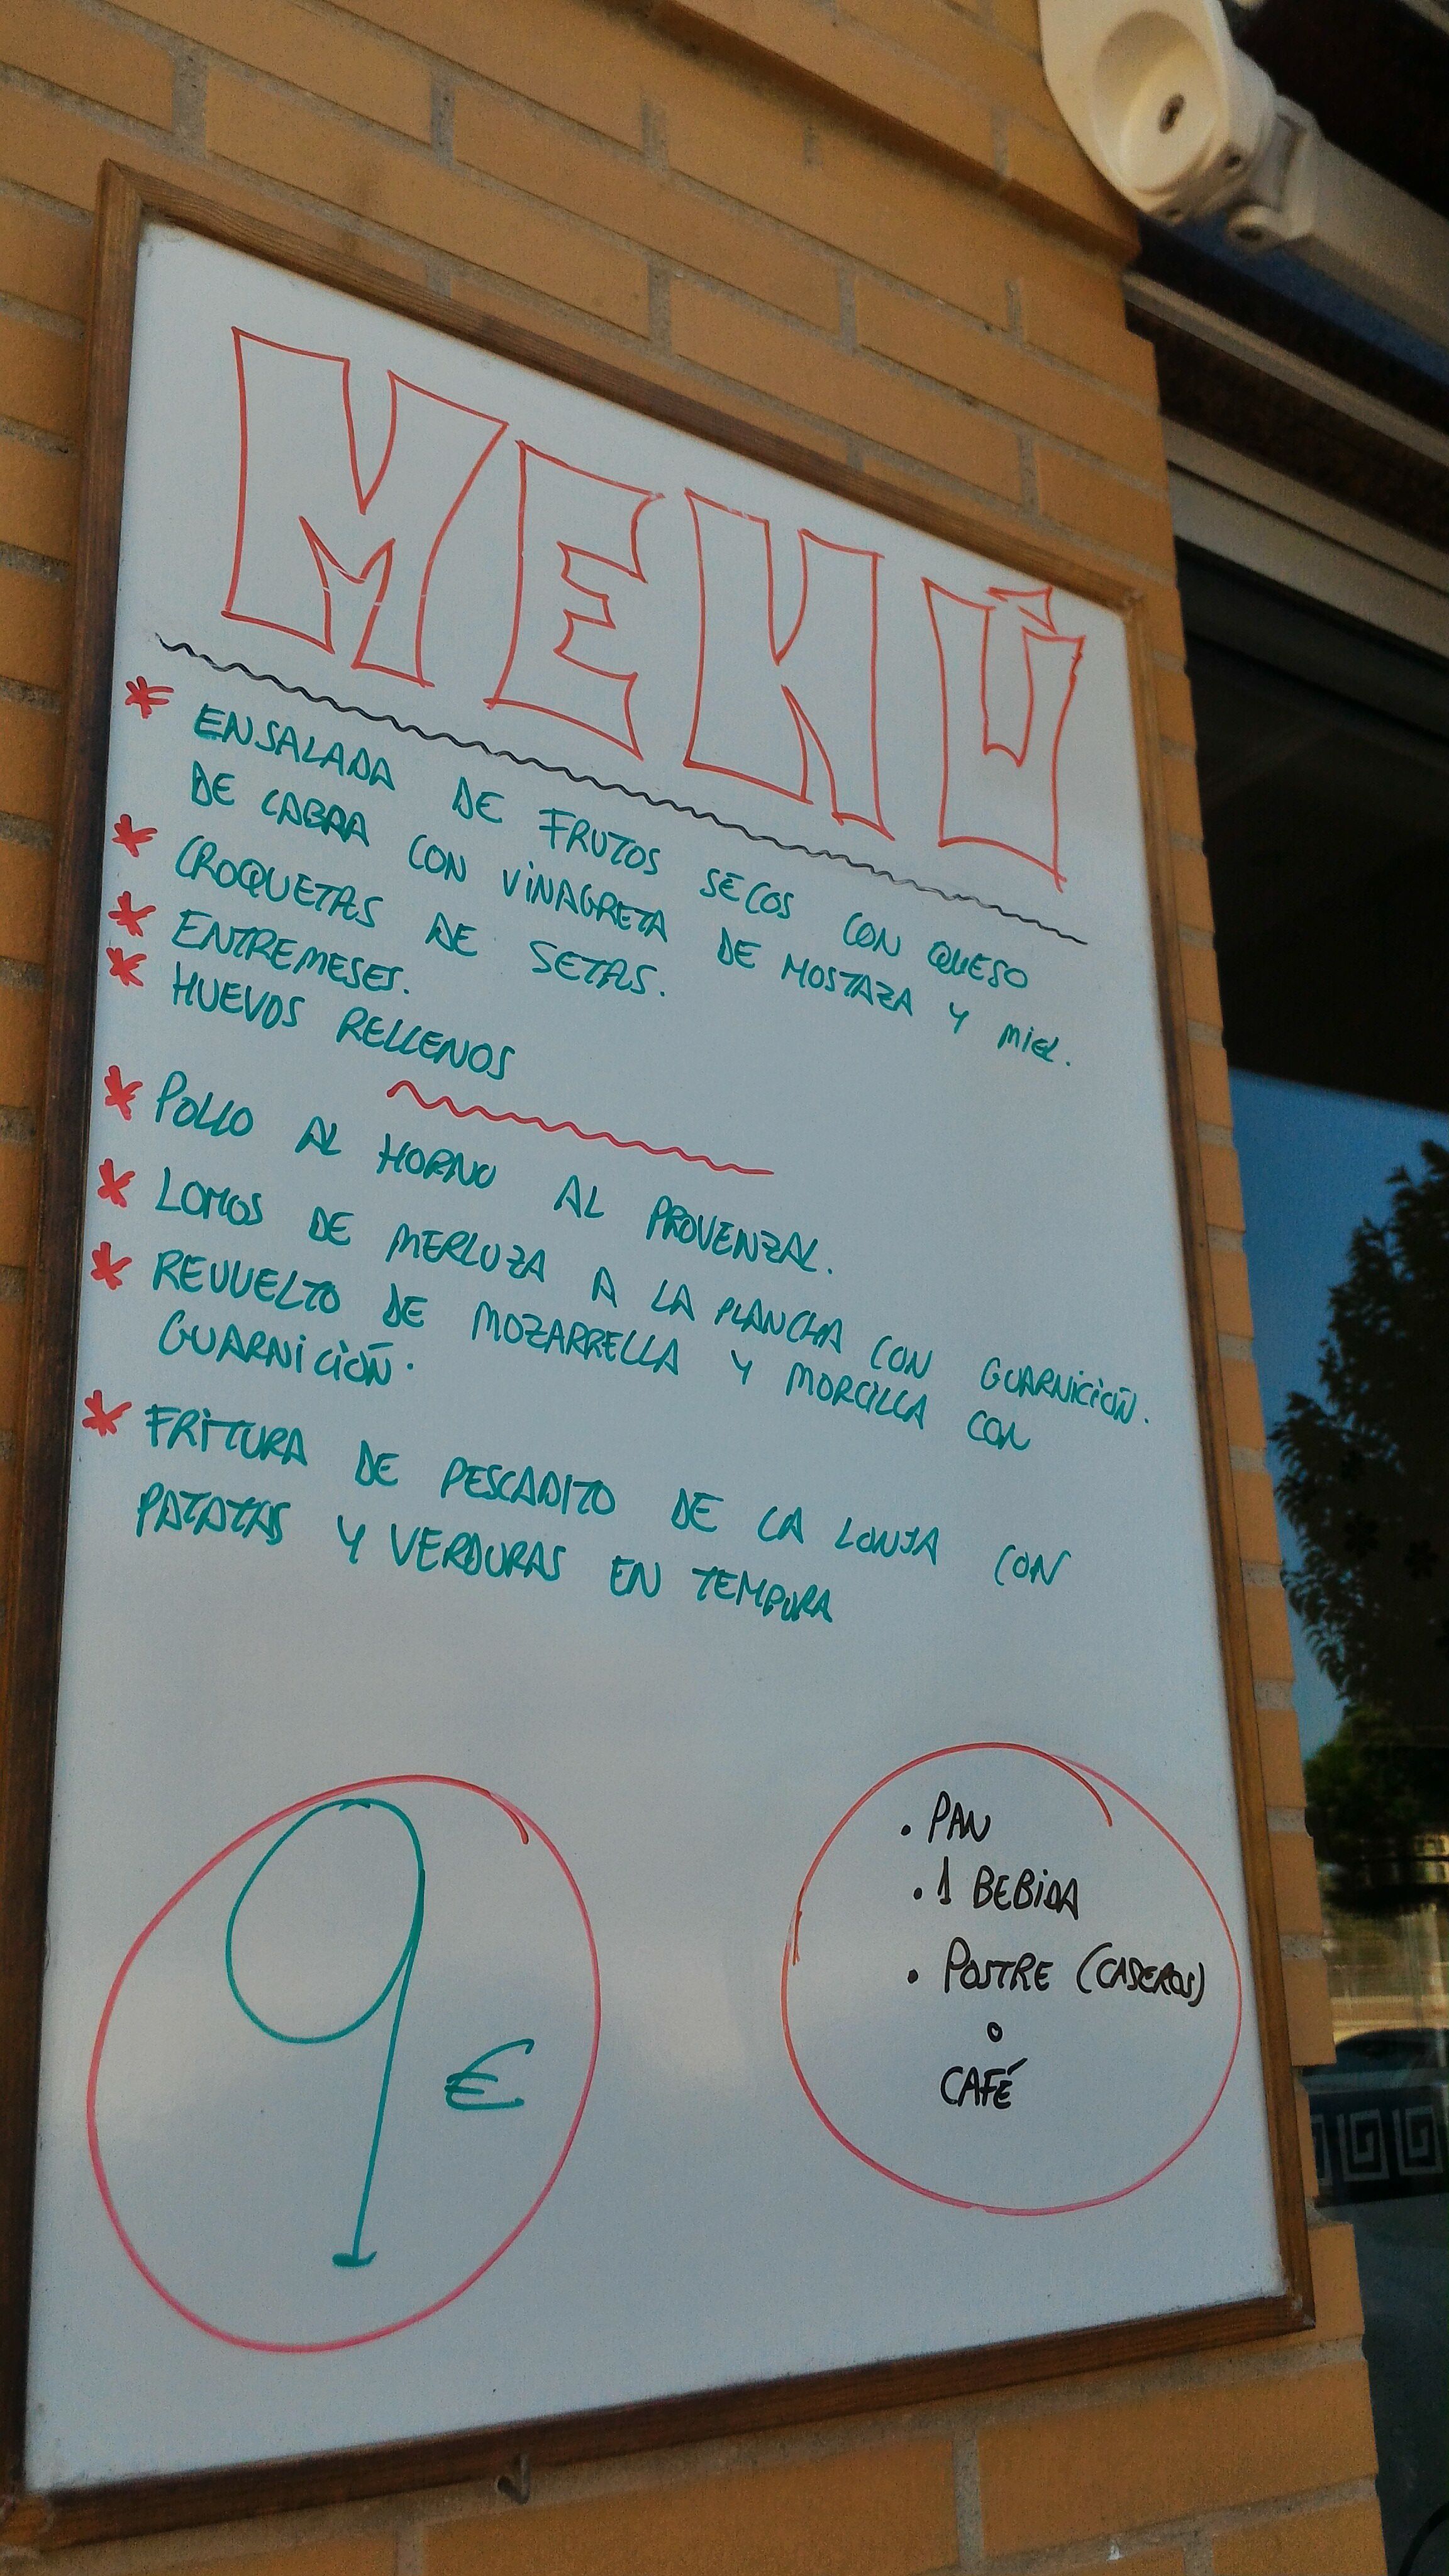 MENÚ
* ENSALADA DE FRUTOS SECOS CON QUESO
DE CABRA CON VINAGRETA DE MOSTAZA Y MIEL.
* CROQUETAS DE SETAS.
* ENTREMESES.
* HUEVOS RELLENOS
* POLLO AL HORNO AL PROVENZAL.
* LOMOS DE MERLUZA A LA PLANCHA CON GUARNICIÓN.
* REVUELTO DE MOZARRELLA Y MORCILLA CON
GUARNICIÓN.
* FRITURA DE PESCADITO DE LA LONJA CON
PATATAS Y VERDURAS EN TEMPURA
9 €
• PAN
• 1 BEBIDA
• POSTRE (CASEROS)
o
CAFÉ